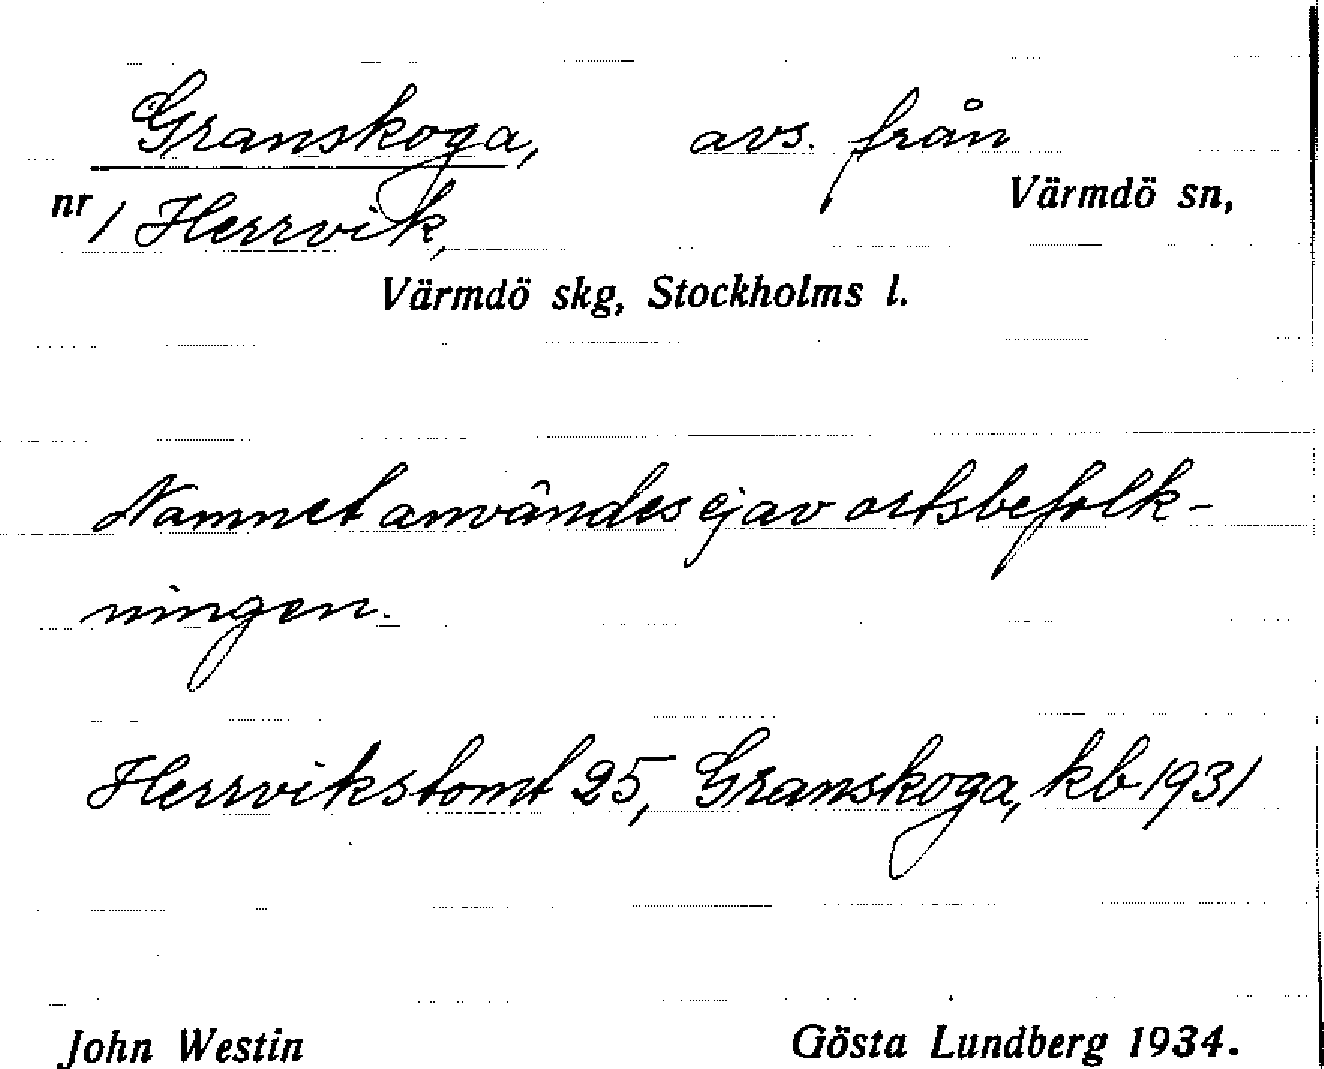 Granskoga, avs. från
nr 1 Herrvik, Värmdö sn,
Värmdö skg, Stockholms l.
Namnet användes ej av ortsbefolk-
ningen.
Herrvikstomt 25, Granskoga, kb 1931
John Westin Gösta Lundberg 1934.